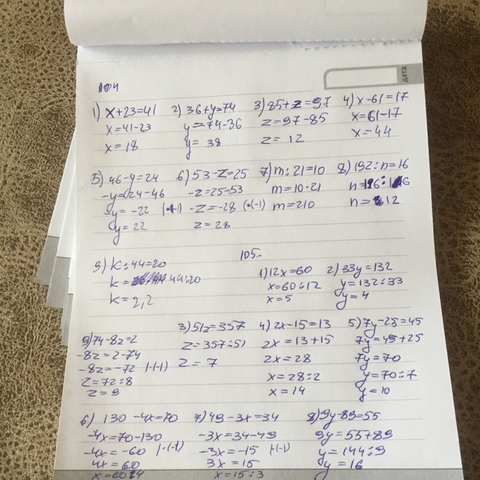 104
1) x+23=41 2) 36+y=74 3) 85+z=97 4) x-61=17
x=41-23 y=74-36 z=97-85 x=61-17
x=18 y=38 z=12 x=44
5) 46-y=24 6) 53-z=25 7) m:21=10 8) 192:n=16
-y=24-46 -z=25-53 m=10·21
y=-22 |·(-1) -z=-28 (·(-1) m=210 n=12
y=22 z=28
9) k:44=20 105.
k= 44:20 1) 12x=60 2) 33y=132
k=2,2 x=60:12 y=132:33
x=5 y=4
9) 74-8z=2 3) 51z=357 4) 2x-15=13 5) 7y-25=45
-8z=2-74 z=357:51 2x=13+15 7y=45+25
-8z=-72 |·(-1) z=7 2x=28 7y=70
z=72:8 x=28:2 y=70:7
z=9 x=14 y=10
6) 130-4x=70 7) 49-3x=34 8) 9y-89=55
-4x=70-130 -3x=34-49 9y=55+89
-4x=-60 |·(-1) -3x=-15 |·(-1) y=144:9
4x=60 3x=15 y=16
x=60:4 x=15:3
дата